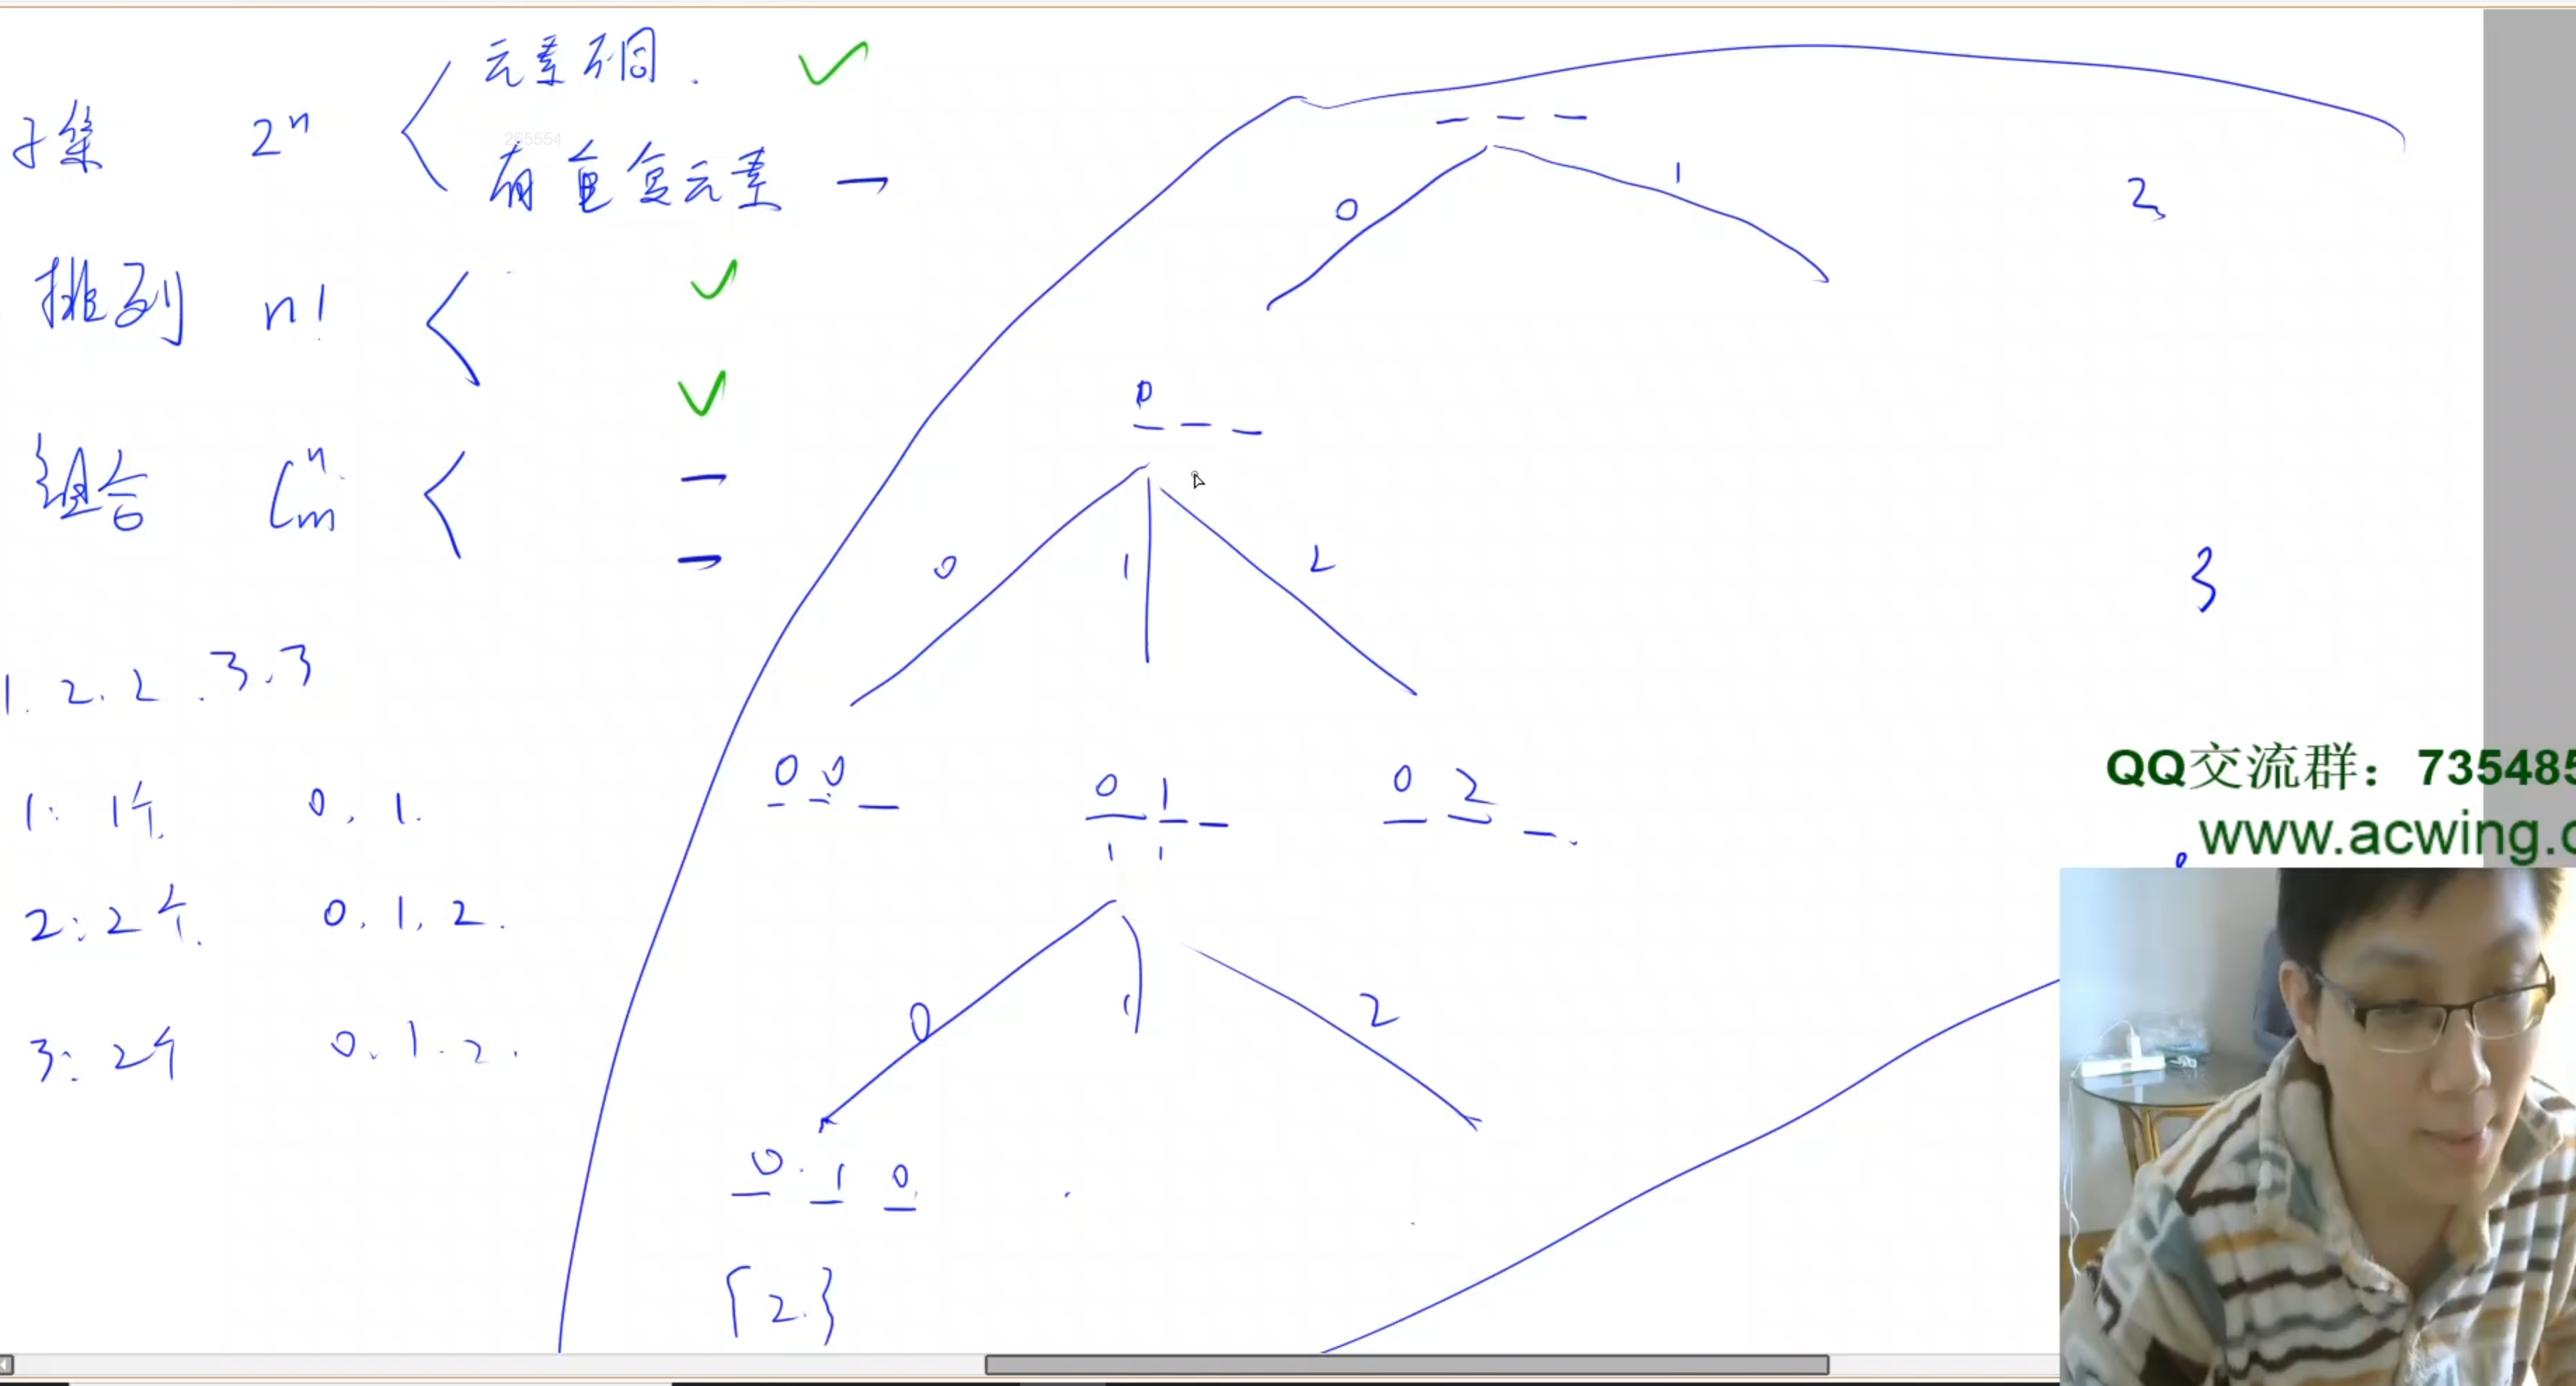 子集 2ⁿ 元素不同.
265554
有重复元素
排列 n!
组合 Cₘⁿ
1. 2. 2. 3. 3
1: 1个. 0, 1.
2: 2个. 0, 1, 2.
3: 2个 0. 1. 2.
_ _ _
0 1 2
0 _ _
0 1 2 3
0 0 _ 0 1 _ 0 2 _.
0 1 2
0. 1 0.
{2.}
QQ交流群：735485
www.acwing.c